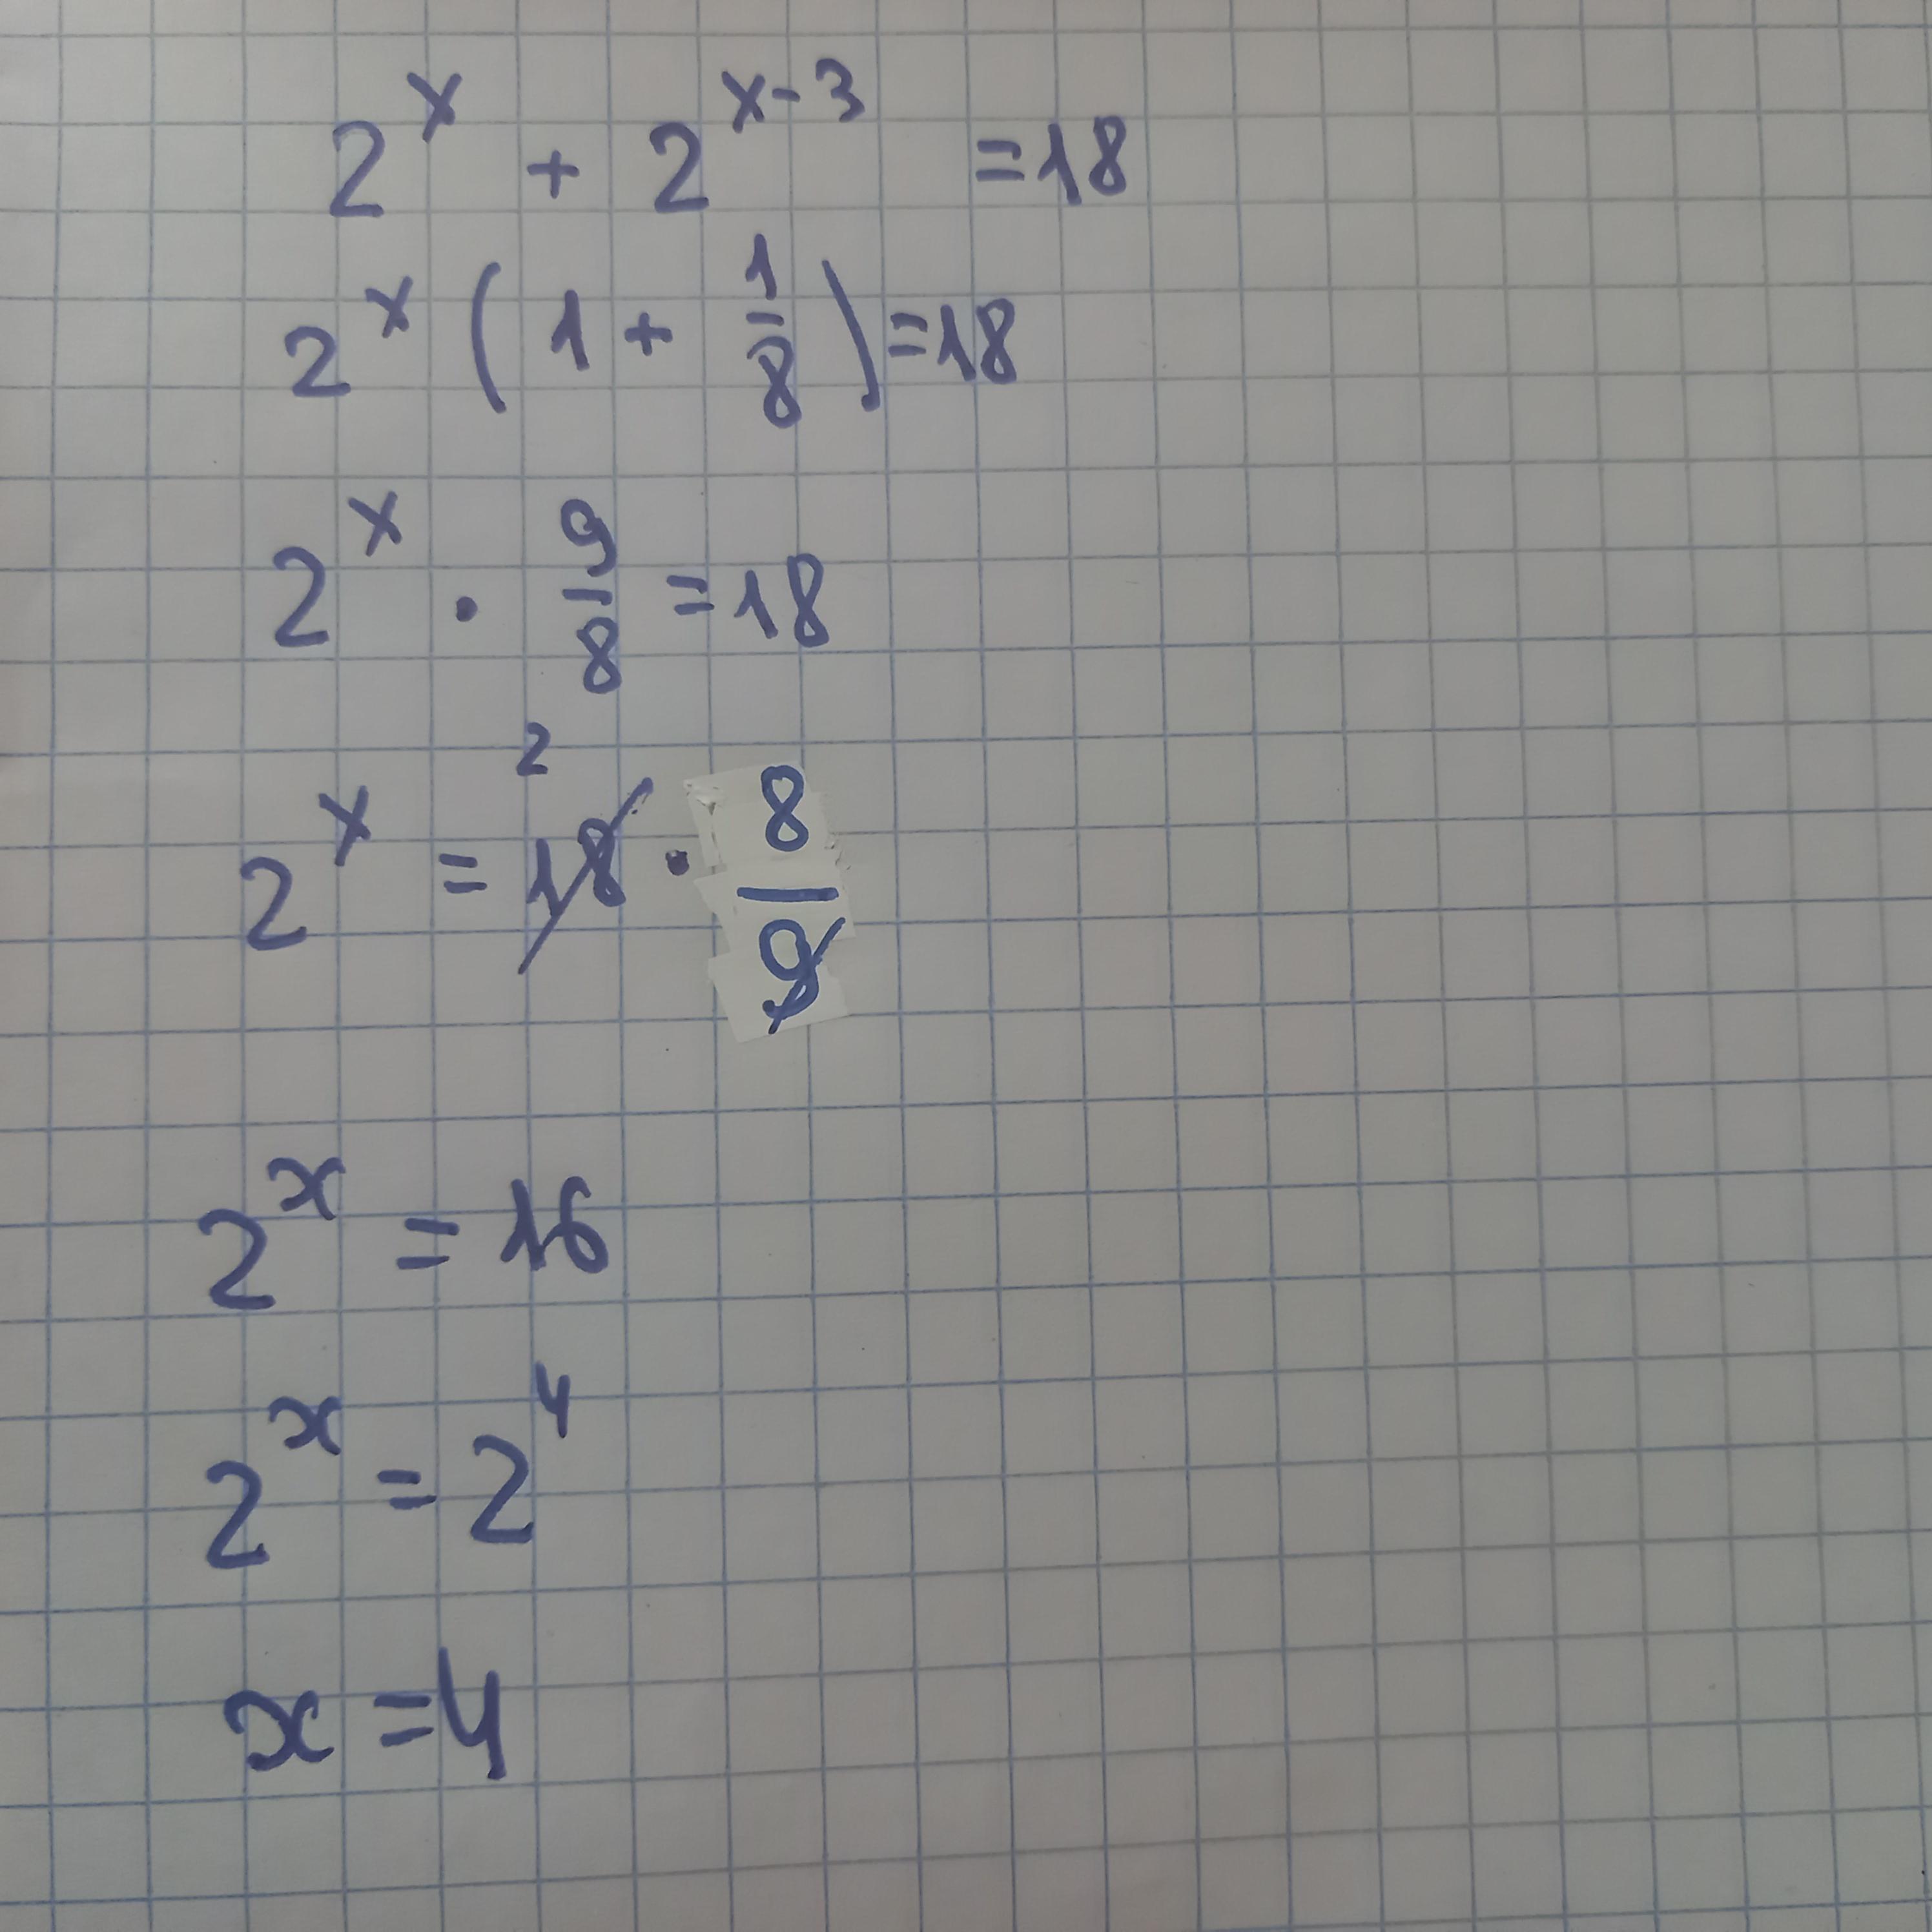 2^x + 2^(x-3) = 18
2^x (1 + 1/8) = 18
2^x · 9/8 = 18
2
2^x = 18 · 8/9
2^x = 16
2^x = 2^4
x = 4